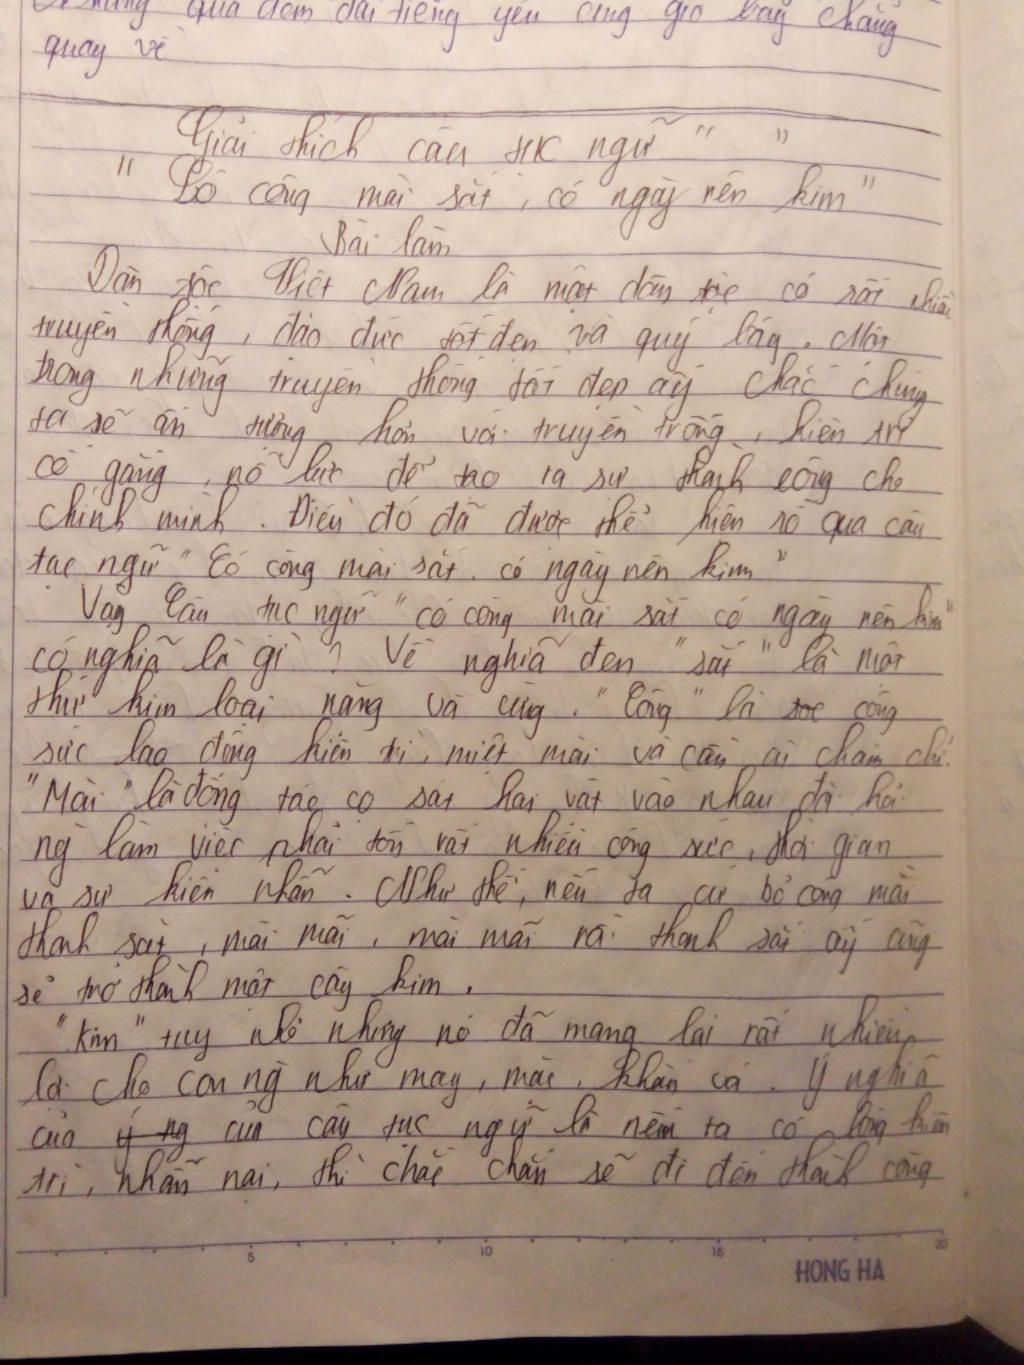 nắng qua đêm dài tiếng yêu cũng gió bay chẳng
quay về
Giải thích câu TK ngữ " "
" Có công mài sắt, có ngày nên kim "
Bài làm
Dân tộc Việt Nam là một dân tộc có rất nhiều
truyền thống, đạo đức tốt đẹp và quý báu. Một
trong những truyền thống tốt đẹp ấy chắc chúng
ta sẽ ấn tượng hơn với truyền trống, kiên trì
cố gắng, nỗ lực để tạo ra sự thành công cho
chính mình. Điều đó đã được thể hiện rõ qua câu
tục ngữ " Có công mài sắt. có ngày nên kim "
Vậy Câu tục ngữ " có công mài sắt có ngày nên kim "
có nghĩa là gì ? Về nghĩa đen " sắt " là một
thứ kim loại nặng và cứng. " Công " là công
sức lao động kiên trì, miệt mài và cần cù chăm chỉ.
" Mài " là động tác cọ sát hai vật vào nhau đòi hỏi
ng làm việc phải tốn rất nhiều công sức, thời gian
và sự kiên nhẫn. Như thế, nếu ta cứ bỏ công mài
thanh sắt, mài mãi, mài mãi rồi thanh sắt ấy cũng
sẽ trở thành một cây kim.
" Kim " tuy nhỏ nhưng nó đã mang lại rất nhiều
lợi cho con ng như may, mặc, khâu vá. Ý nghĩa
của của câu tục ngữ là nếu ta có lòng kiên
trì, nhẫn nại, thì chắc chắn sẽ đi đến thành công
5 10 15 20
HONG HA